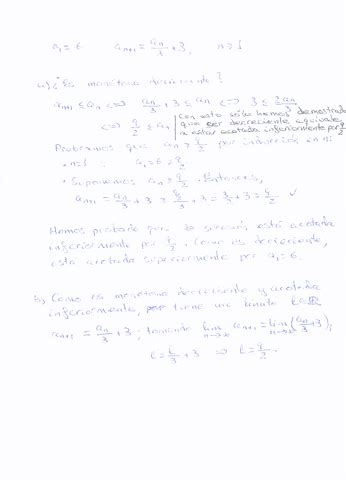 a₁ = 6 aₙ₊₁ = aₙ/3 + 3, n ≥ 1
a) ¿Es monótona decreciente?
aₙ₊₁ ≤ aₙ ⟺ aₙ/3 + 3 ≤ aₙ ⟺ 3 ≤ 2aₙ/3
⟺ 9/2 ≤ aₙ
Con esto sólo hemos demostrado
que ser decreciente equivale
a estar acotada inferiormente por 9/2
Probaremos que aₙ ≥ 9/2 por inducción en n:
• n=1 : a₁ = 6 ≥ 9/2
• Suponemos aₙ ≥ 9/2. Entonces,
aₙ₊₁ = aₙ/3 + 3 ≥ 9/2/3 + 3 = 3/2 + 3 = 9/2 ✓
Hemos probado que la sucesión está acotada
inferiormente por 9/2. Como es decreciente,
está acotada superiormente por a₁ = 6.
b) Como es monótona decreciente y acotada
inferiormente, tiene un límite ℓ∈ℝ
aₙ₊₁ = aₙ/3 + 3; tomando lim n→∞ aₙ₊₁ = lim n→∞ (aₙ/3 + 3),
ℓ = ℓ/3 + 3 ⇒ ℓ = 9/2.